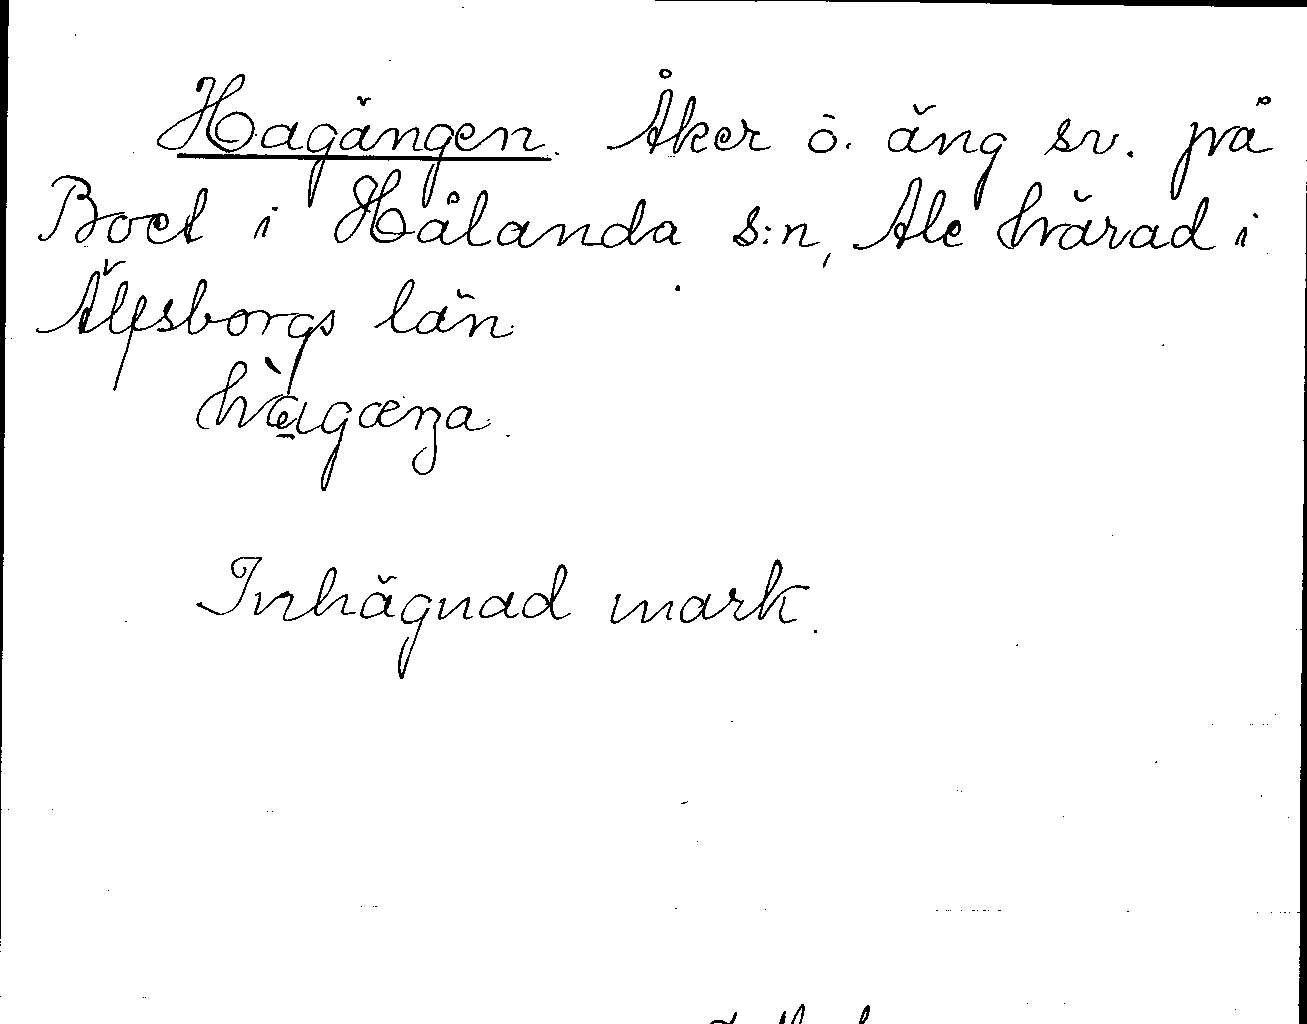 Hagängen. Åker o. äng sv. på
Boet i Hålanda s:n, Ale härad i
Älfsborgs län
hàgæŋa.
Inhägnad mark.